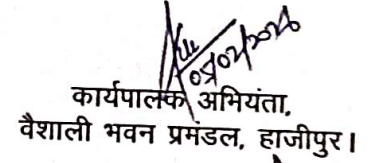 05/02/2026
कार्यपालक अभियंता,
वैशाली भवन प्रमंडल, हाजीपुर।